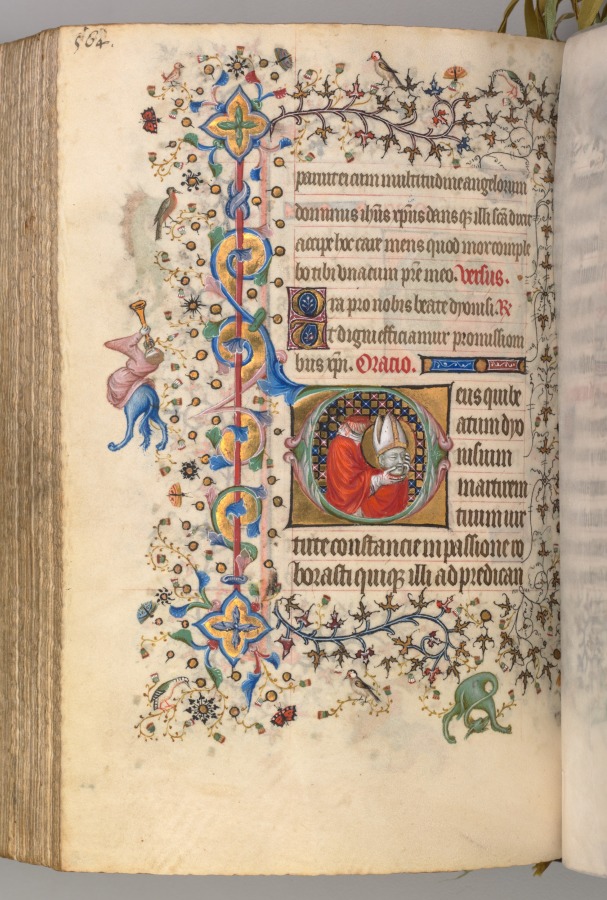 564.
paruit ei cum multitudine angelorum
dominus ihūs xp̄us dans q̄ illi scā dixit
accipe hoc care mens quod mox comple
bo tibi vna cum pr̄e meo. Versus.
Ora pro nobis beate dyonisi. R
At digni efficiamur promission
bus xp̄i. Oracio.
Deus qui be
atum dyo
nisium
martirem
tuum uir
tute constancie in passione ro
borasti quiq; illi ad predican